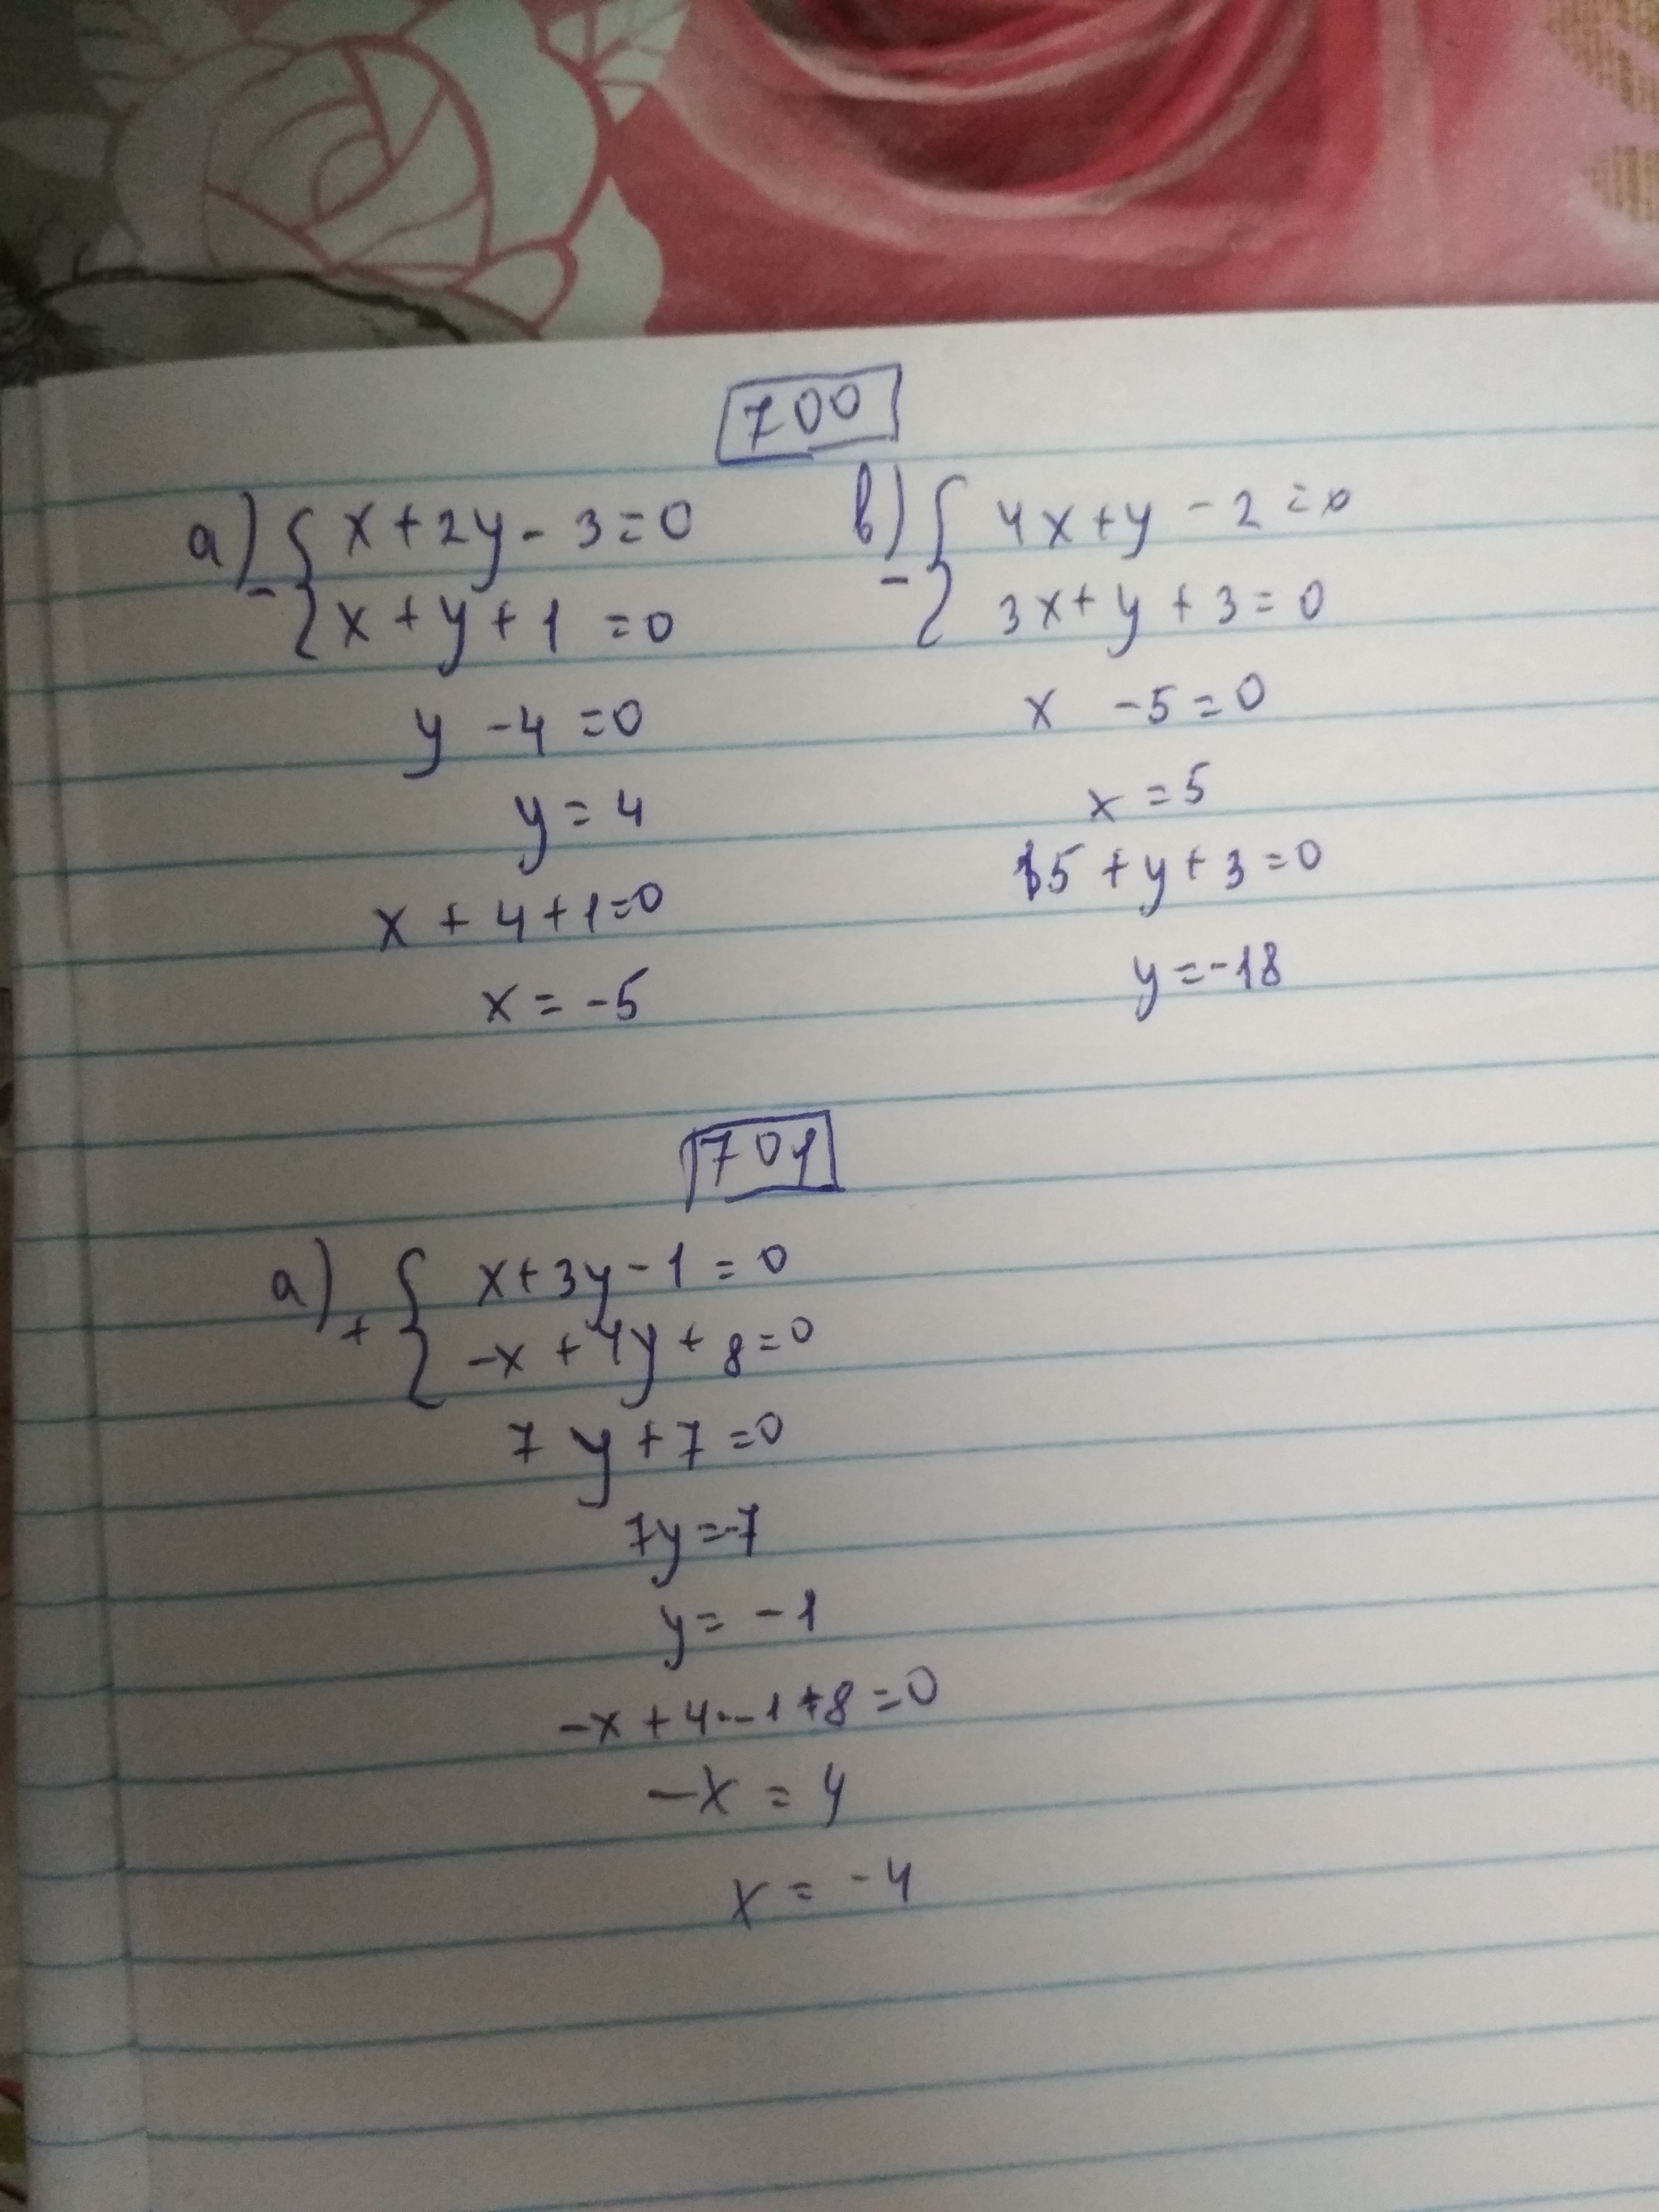 700
а) - { x + 2y - 3 = 0
x + y + 1 = 0
y - 4 = 0
y = 4
x + 4 + 1 = 0
x = -5
в) - { 4x + y - 2 = 0
3x + y + 3 = 0
x - 5 = 0
x = 5
15 + y + 3 = 0
y = -18
701
а) + { x + 3y - 1 = 0
-x + 4y + 8 = 0
7y + 7 = 0
7y = -7
y = -1
-x + 4·-1 + 8 = 0
-x = 4
x = -4